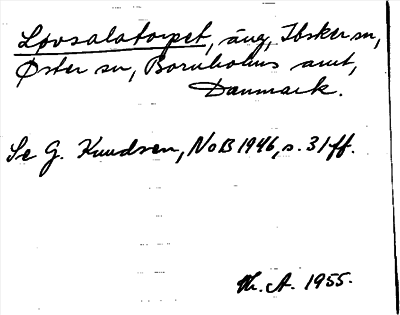 Lovsalatorpet, äng, Ibsker sn,
Øster sn, Bornholms amt,
Danmark.
Se G. Knudsen, NoB 1946, s. 31 ff.
Th. A. 1955.